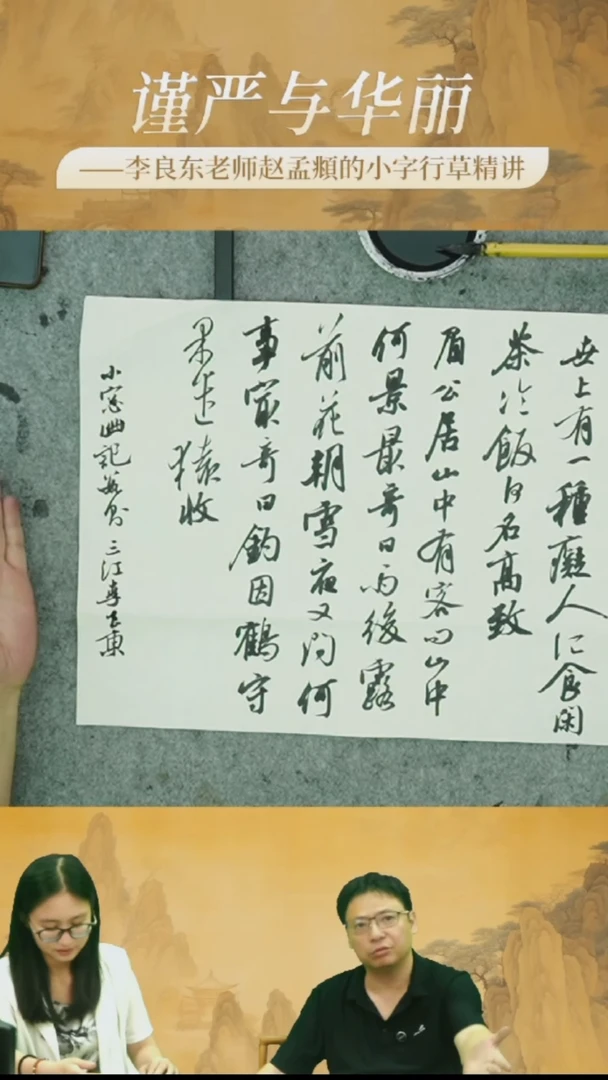 谨严与华丽
——李良东老师赵孟頫的小字行草精讲
世上有一種癡人所食閑
茶冷飯何名高致
眉公居山中有客问山中
何景最奇曰雨後露
前花朝雪夜又问何
事最奇曰釣因鶴守
果遣猿收
小窓幽記数则 三江李良東